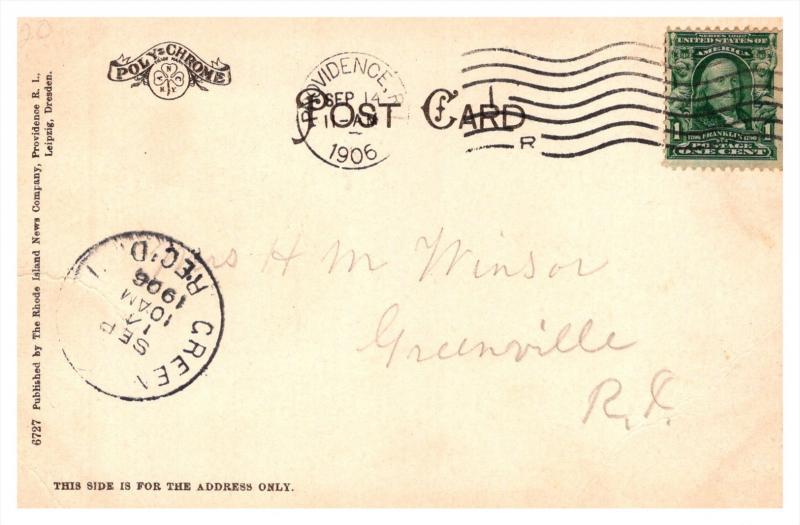 20
POLY-CHROME
TRADE MARK
N
N.Y.
PROVIDENCE, R.
SEP 14
1 AM
1906
POST CARD
R
SERIES 1902
UNITED STATES OF
AMERICA
1 FRANKLIN 1790 1
POSTAGE
ONE CENT
6727 Published by The Rhode Island News Company, Providence R. I.,
Leipzig, Dresden.
GREE
SEP
14
10AM
1906
REC'D
Mrs H M Winsor
Greenville
R.I.
THIS SIDE IS FOR THE ADDRESS ONLY.